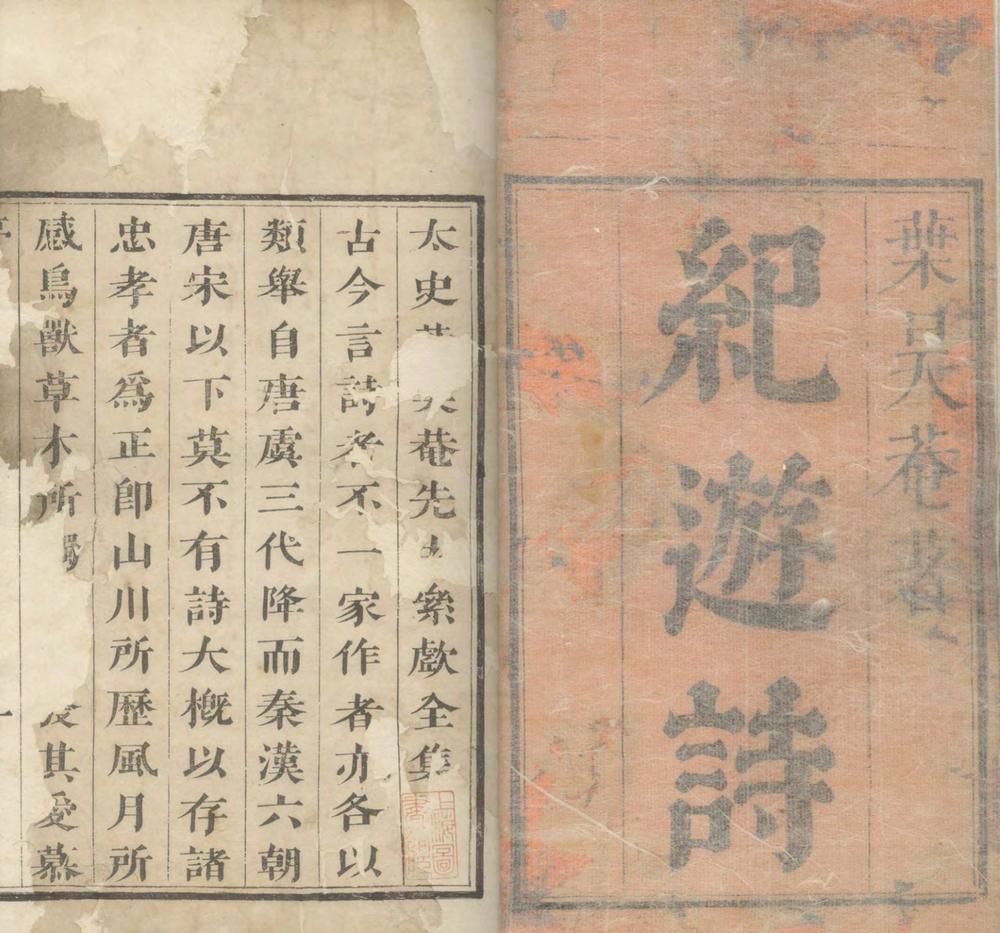 葉昊菴著
紀遊詩
太史葉昊菴先生樂歗全集
古今言詩者不一家作者亦各以
類舉自唐虞三代降而秦漢六朝
唐宋以下莫不有詩大槪以存諸
忠孝者為正卽山川所歷風月所
感鳥獸草木所觸其愛慕